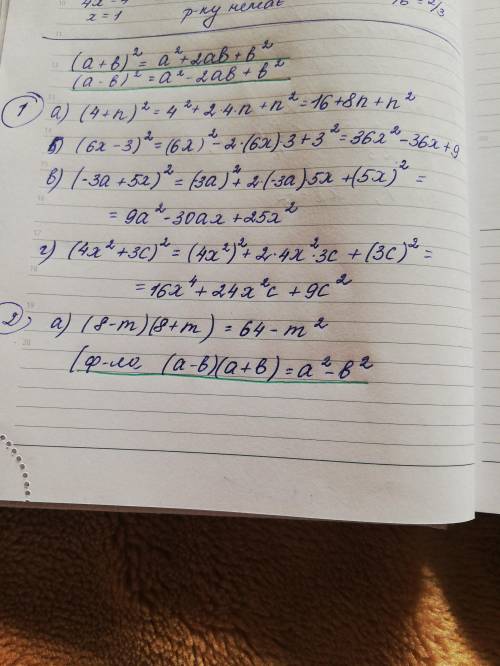 x = 1 р-ку немає
(a+b)² = a²+2ab+b²
(a-b)² = a²-2ab+b²
1 а) (4+n)² = 4²+2·4·n+n² = 16+8n+n²
б) (6x-3)² = (6x)²-2·(6x)·3+3² = 36x²-36x+9
в) (-3a+5x)² = (3a)²+2·(-3a)5x+(5x)² =
= 9a²-30ax+25x²
г) (4x²+3c)² = (4x²)²+2·4x²·3c+(3c)² =
= 16x⁴+24x²c+9c²
2 а) (8-m)(8+m) = 64-m²
(ф-ла (a-b)(a+b) = a²-b²